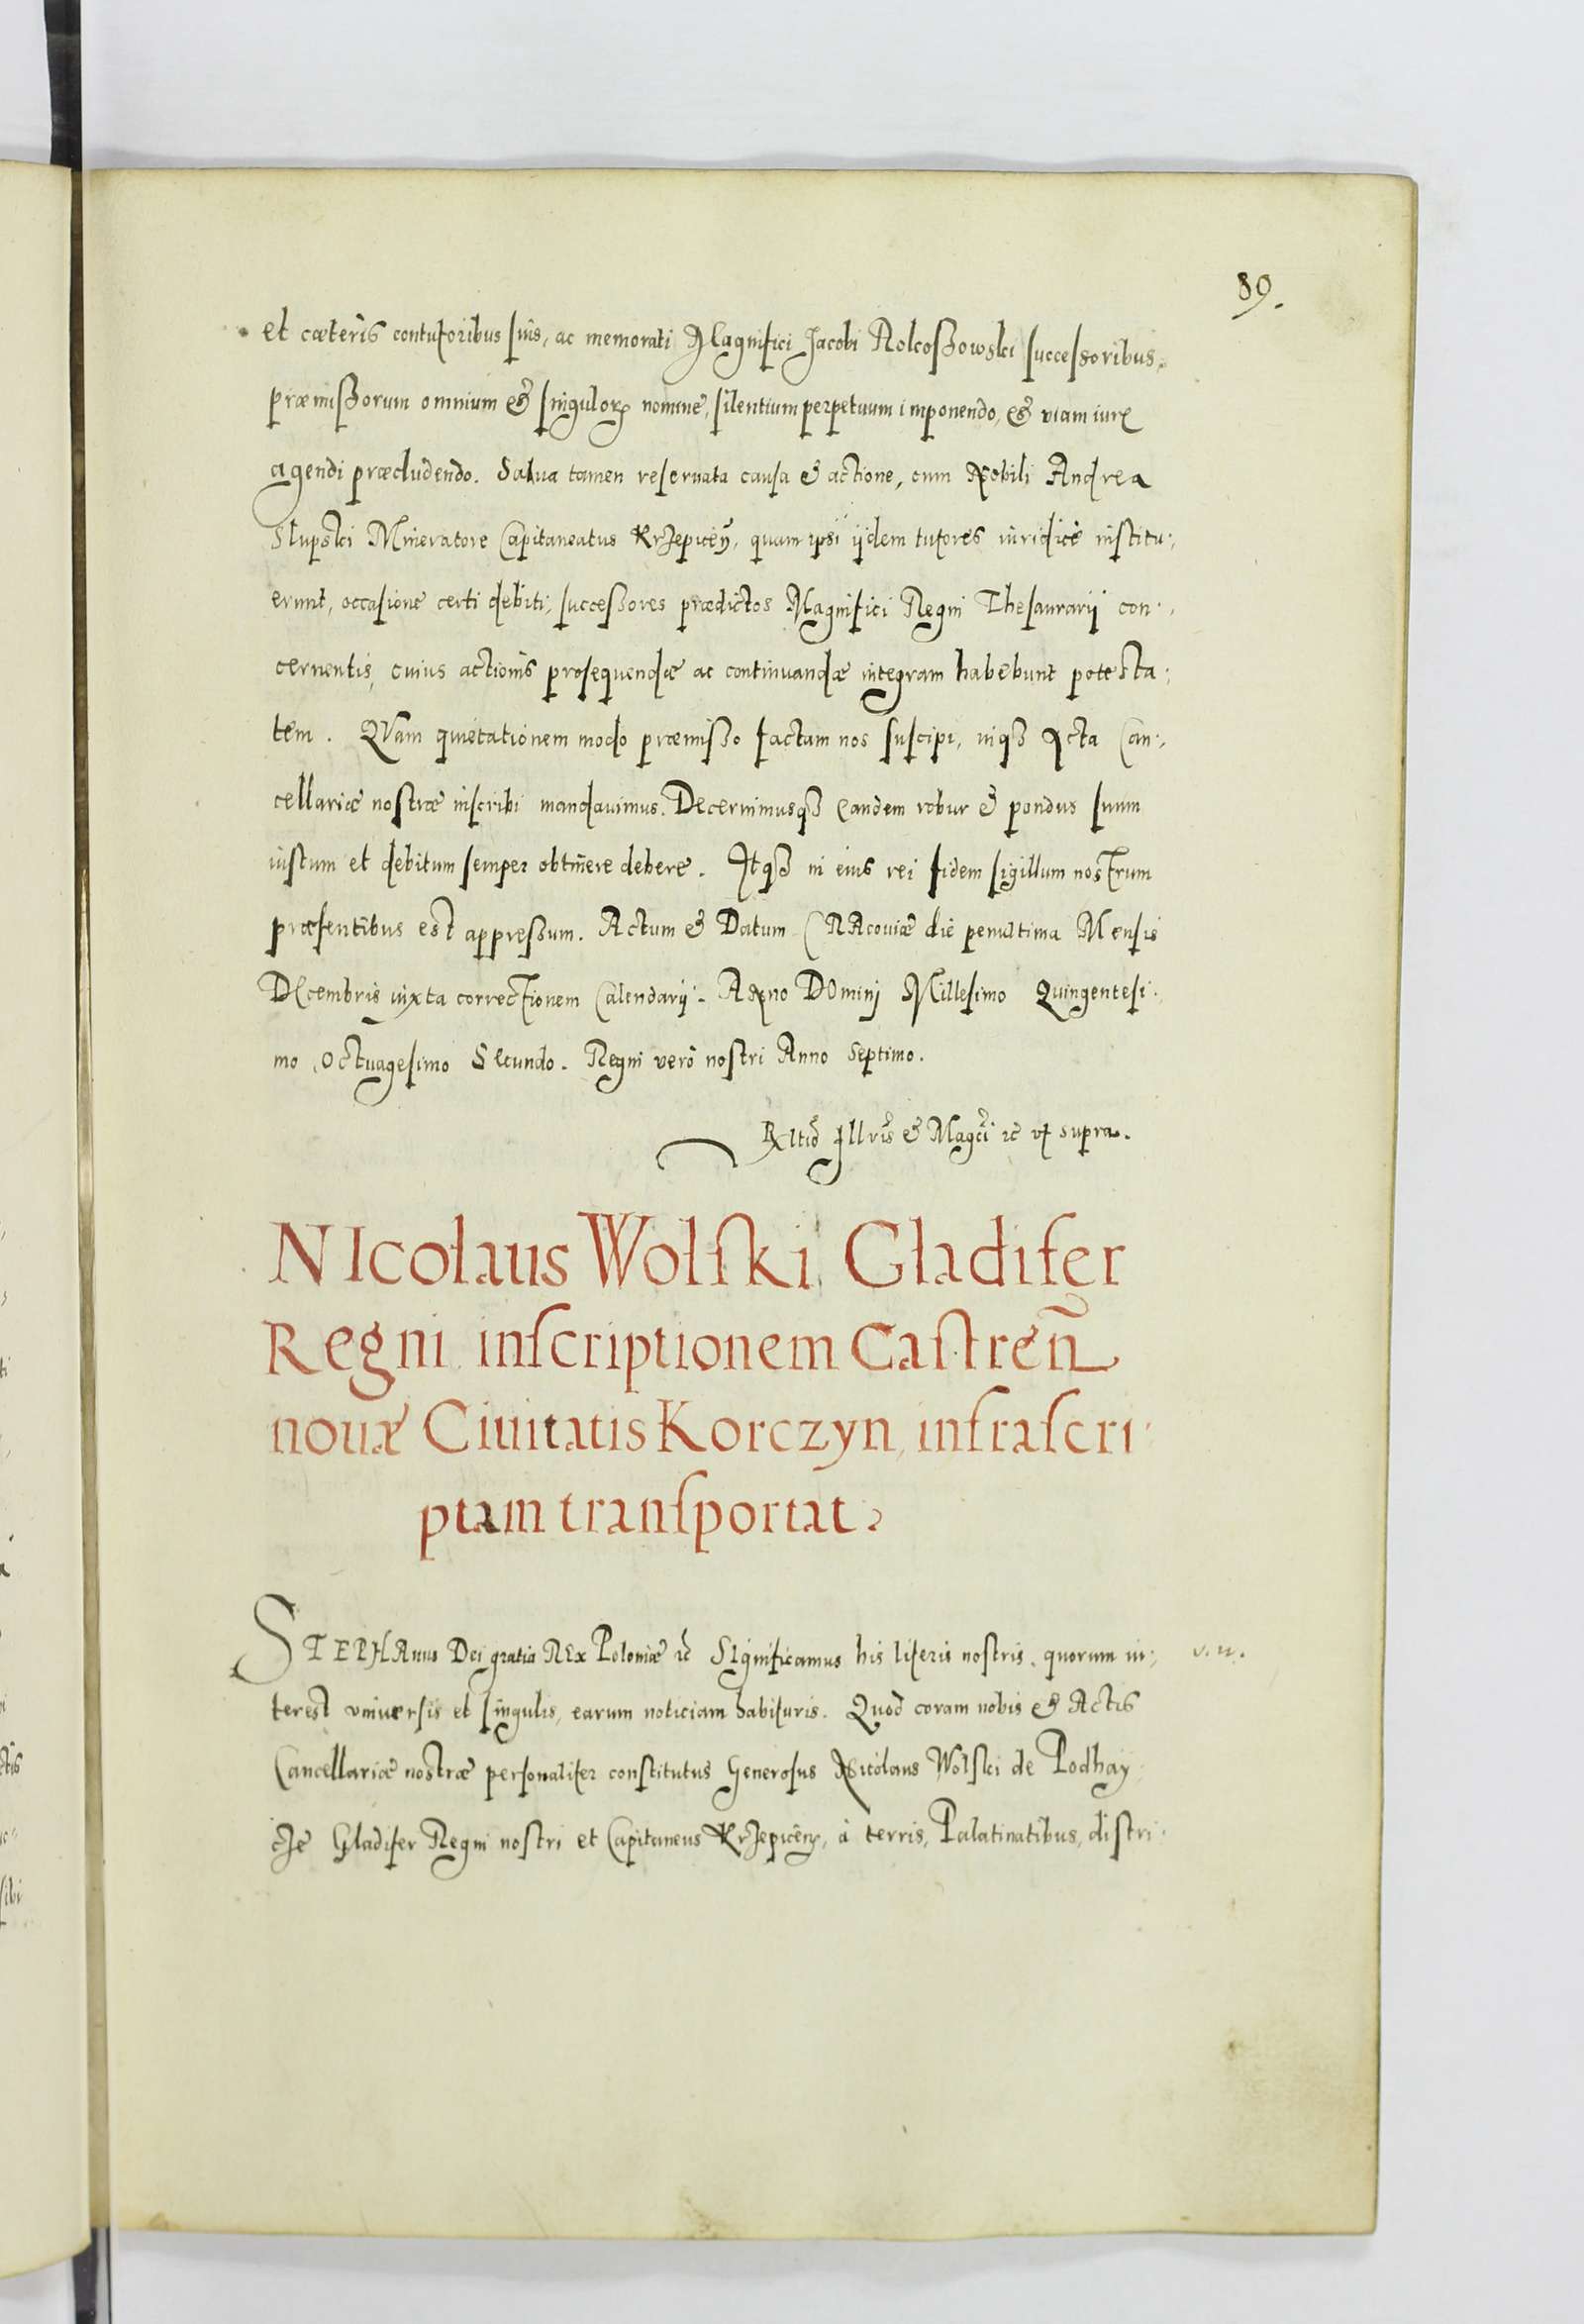 89.
et cæteris contutoribus suis, ac memorati Magnifici Jacobi Rokoszowski successoribus,
præmissorum omnium & singulorꝝ nomine, silentium perpetuum imponendo, & viam iurę
agendi præcludendo. Salua tamen reseruata causa & actione, cum Nobili Andrea
Slupski Mineratore Capitaneatus Krzepicen̄, quam ipsi ijdem tutores iuridicè institu:
erunt, occasione certi debiti, successores prædictos Magnifici Regni Thesaurarij con:
cernentis, cuius actionis prosequendæ ac continuandæ integram habebunt potesta:
tem. QVam quietationem modo præmisso factam nos suscipi, inqꝫ Acta Can:
cellariæ nostræ inscribi mandauimus. Decernimusqꝫ eandem robur & pondus suum
iustum et debitum semper obtinere debere. Itqꝫ in eius rei fidem sigillum nostrum
præsentibus est appressum. Actum & Datum CRAcouiæ die penultima Mensis
DEcembris iuxta correctionem Calendarij. Anno DOminj Millesimo Quingentesi:
mo, Octuagesimo SEcundo. Regni verò nostri Anno Septimo.
Rltio Illris & Magci ꝛc vt supra.
NIcolaus Wolski Gladifer
Regni inscriptionem Castren̄
nouæ Ciuitatis Korczyn, infrascri:
ptam transportat.
STEPHAnus Dei gratia REx Poloniæ ꝛc SIgnificamus his literis nostris, quorum in:
v. n.
terest vniuersis et singulis, earum noticiam habituris. Quod coram nobis & Actis
Cancellariæ nostræ personaliter constitutus Generosus Nicolaus Wolski de Podhay
cze Gladifer Regni nostri et Capitaneus Krzepicen̄, à terris, Palatinatibus, distri: